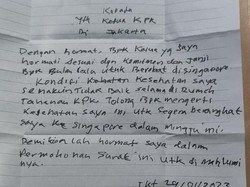 Kepada
Yth Ketua KPK
Di Jakarta
Dengan hormat. Bpk Ketua yg saya
hormati sesuai dgn komitmen dan janji
Bpk Bulan lalu untuk Berobat di Singapore
Kondisi Kesehatan saya
semakin Tidak Baik selama di Rumah
Tahanan KPK. Tolong Bpk mengerti
Kesehatan saya ini utk segera Berangkat
saya ke Singapore dalam minggu ini.
Demikian lah hormat saya dalam
Permohonan surat ini utk di maklumi
nya.
Jkt 29/01/2023